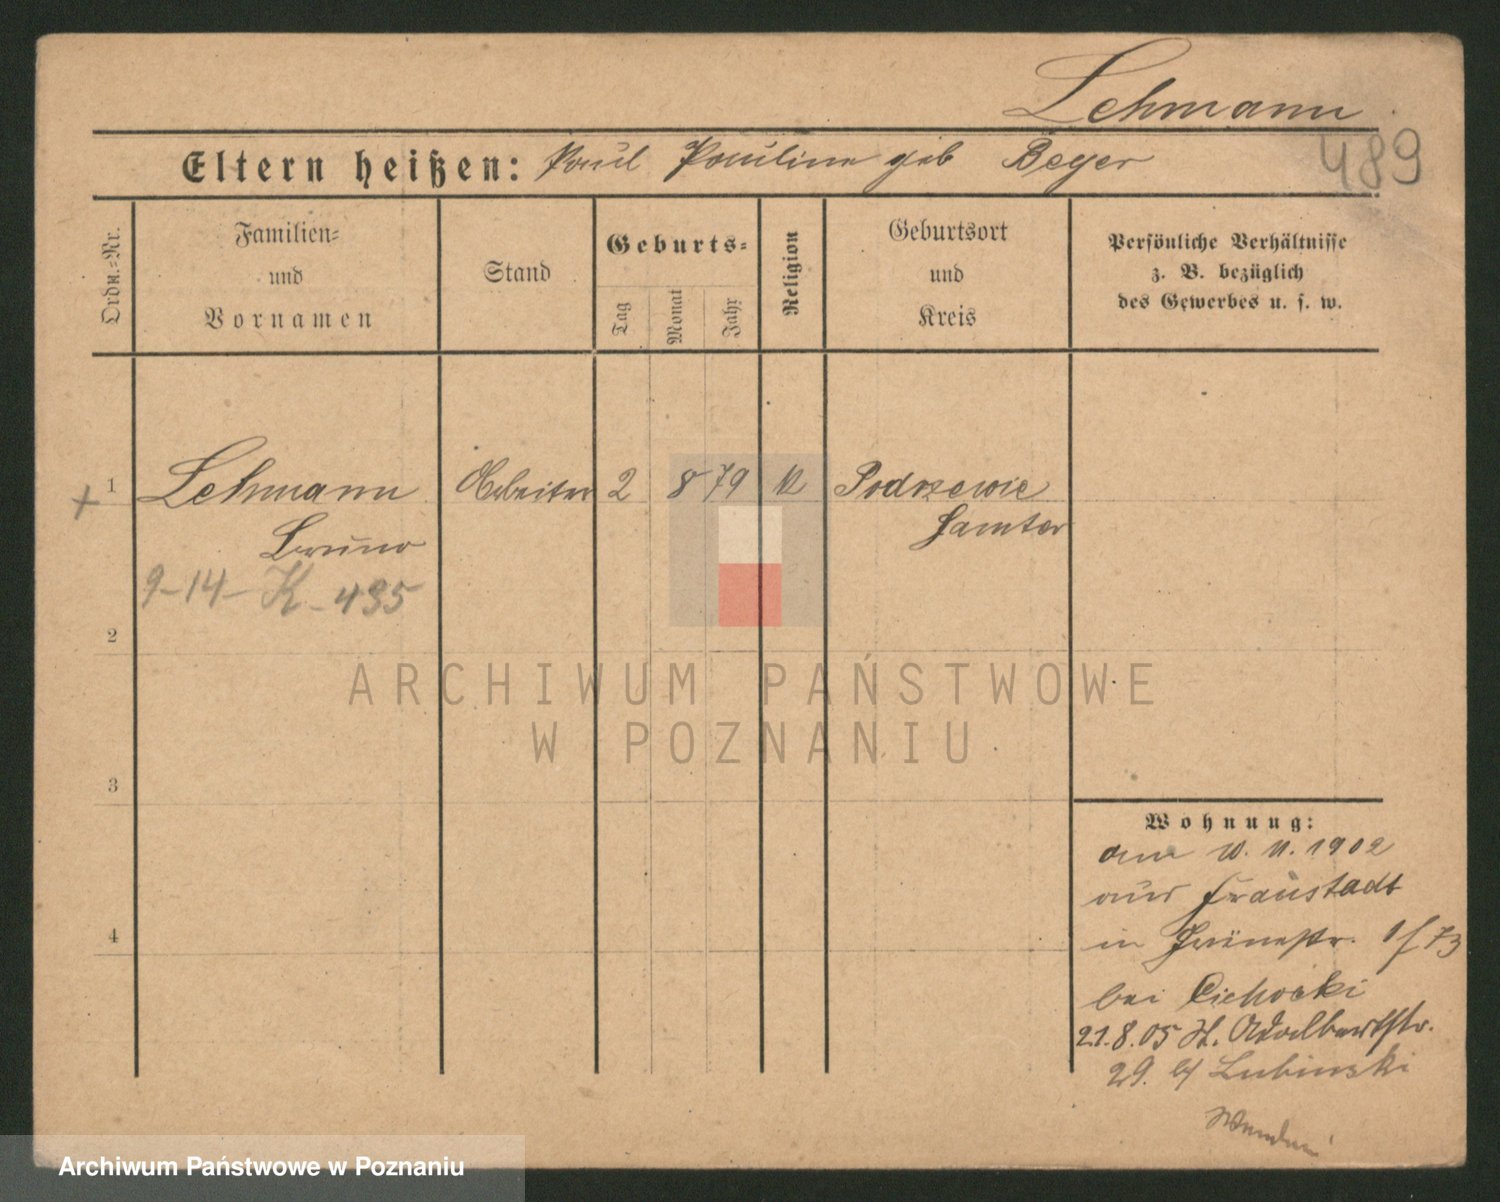 Lehmann
489
Eltern heißen: Paul Pauline geb Beyer
Ordn.=Nr.
Familien=
und
Vornamen
Stand
Geburts=
Tag
Monat
Jahr
Religion
Geburtsort
und
Kreis
Persönliche Verhältnisse
z. B. bezüglich
des Gewerbes u. s. w.
+ 1 Lehmann Arbeiter 2 8 79 K Podrzewie
Bruno Samter
9-14- K- 435
2
3
4
ARCHIWUM PAŃSTWOWE
W POZNANIU
Wohnung:
10. 11. 1902
aus Fraustadt
in Grünestr. 1/73
bei Cichocki
21.8.05 St. Adalbertstr.
29. b/ Lubinski
Archiwum Państwowe w Poznaniu